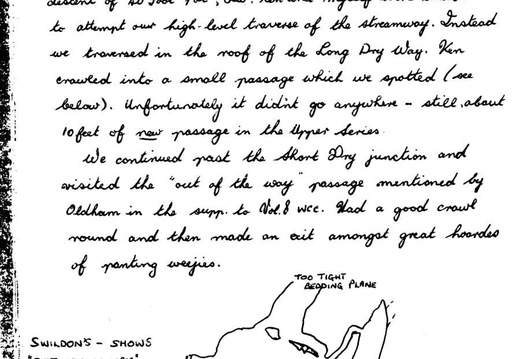 to attempt our high-level traverse of the streamway. Instead
we traversed in the roof of the Long Dry Way. Ken
crawled into a small passage which we spotted (see
below). Unfortunately it didn't go anywhere - still, about
10 feet of new passage in the Upper Series.
We continued past the Short Dry junction and
visited the "out of the way" passage mentioned by
Oldham in the supp. to Vol. 8 WCC. Had a good crawl
round and then made an exit amongst great hoardes
of panting weejies.
TOO TIGHT
BEDDING PLANE
SWILDON'S - SHOWS